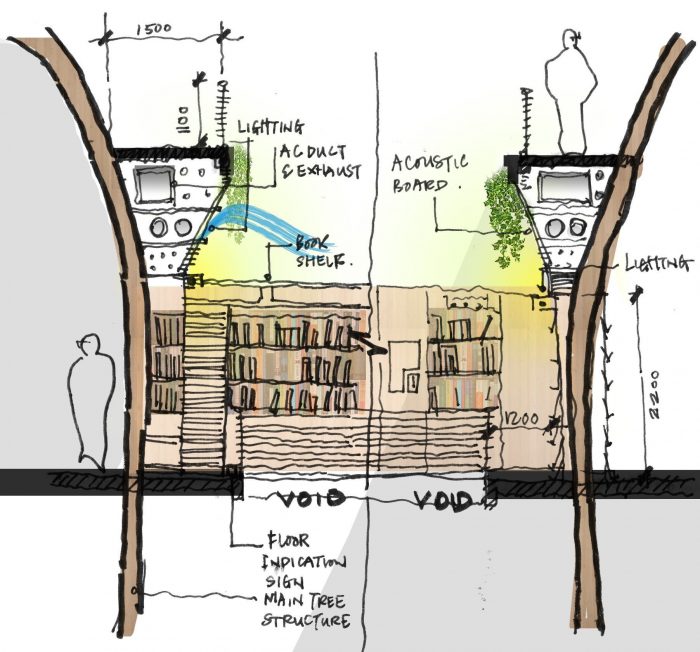 1500
1100
LIGHTING
AC DUCT
& EXHAUST
ACOUSTIC
BOARD.
BOOK
SHELF.
LIGHTING
2200
1200
VOID
VOID
FLOOR
INDICATION
SIGN
MAIN TREE
STRUCTURE